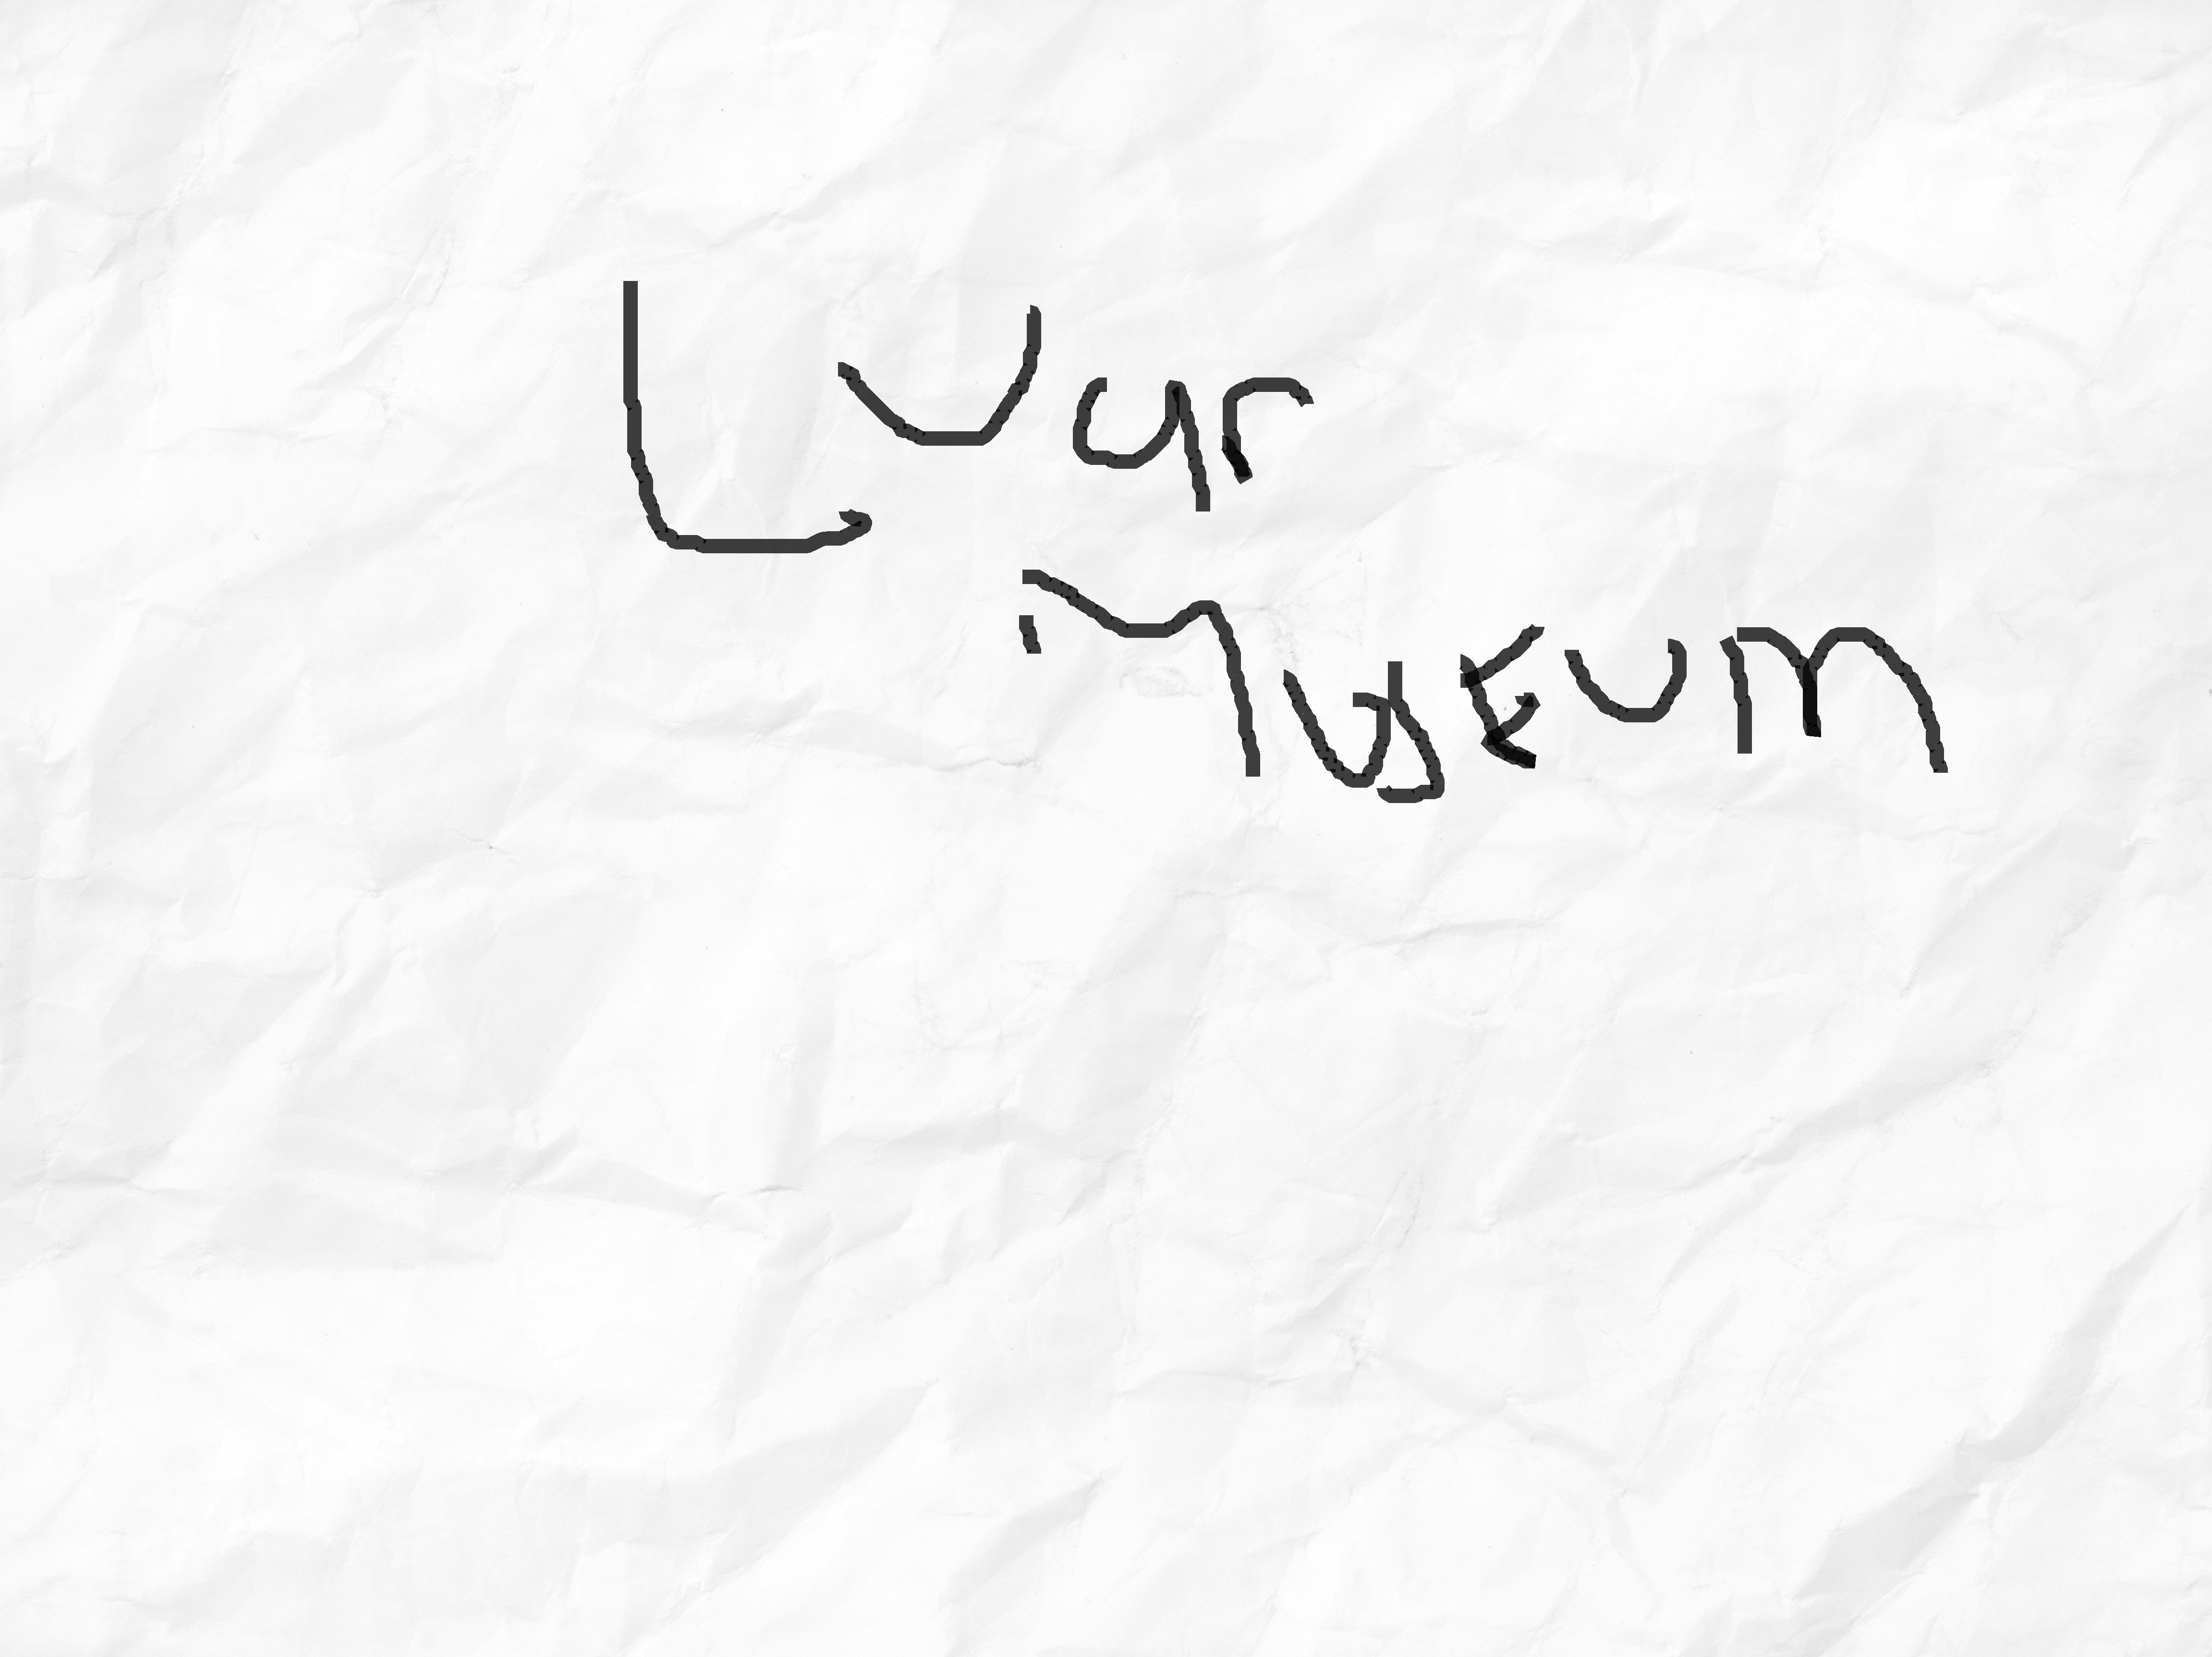 Luar
Museum